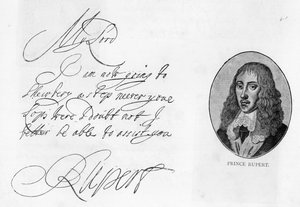 My Lord
I am now going to
Shrewsbery
Lop: were I doubt not I
be able to assist you
Rupert
PRINCE RUPERT.